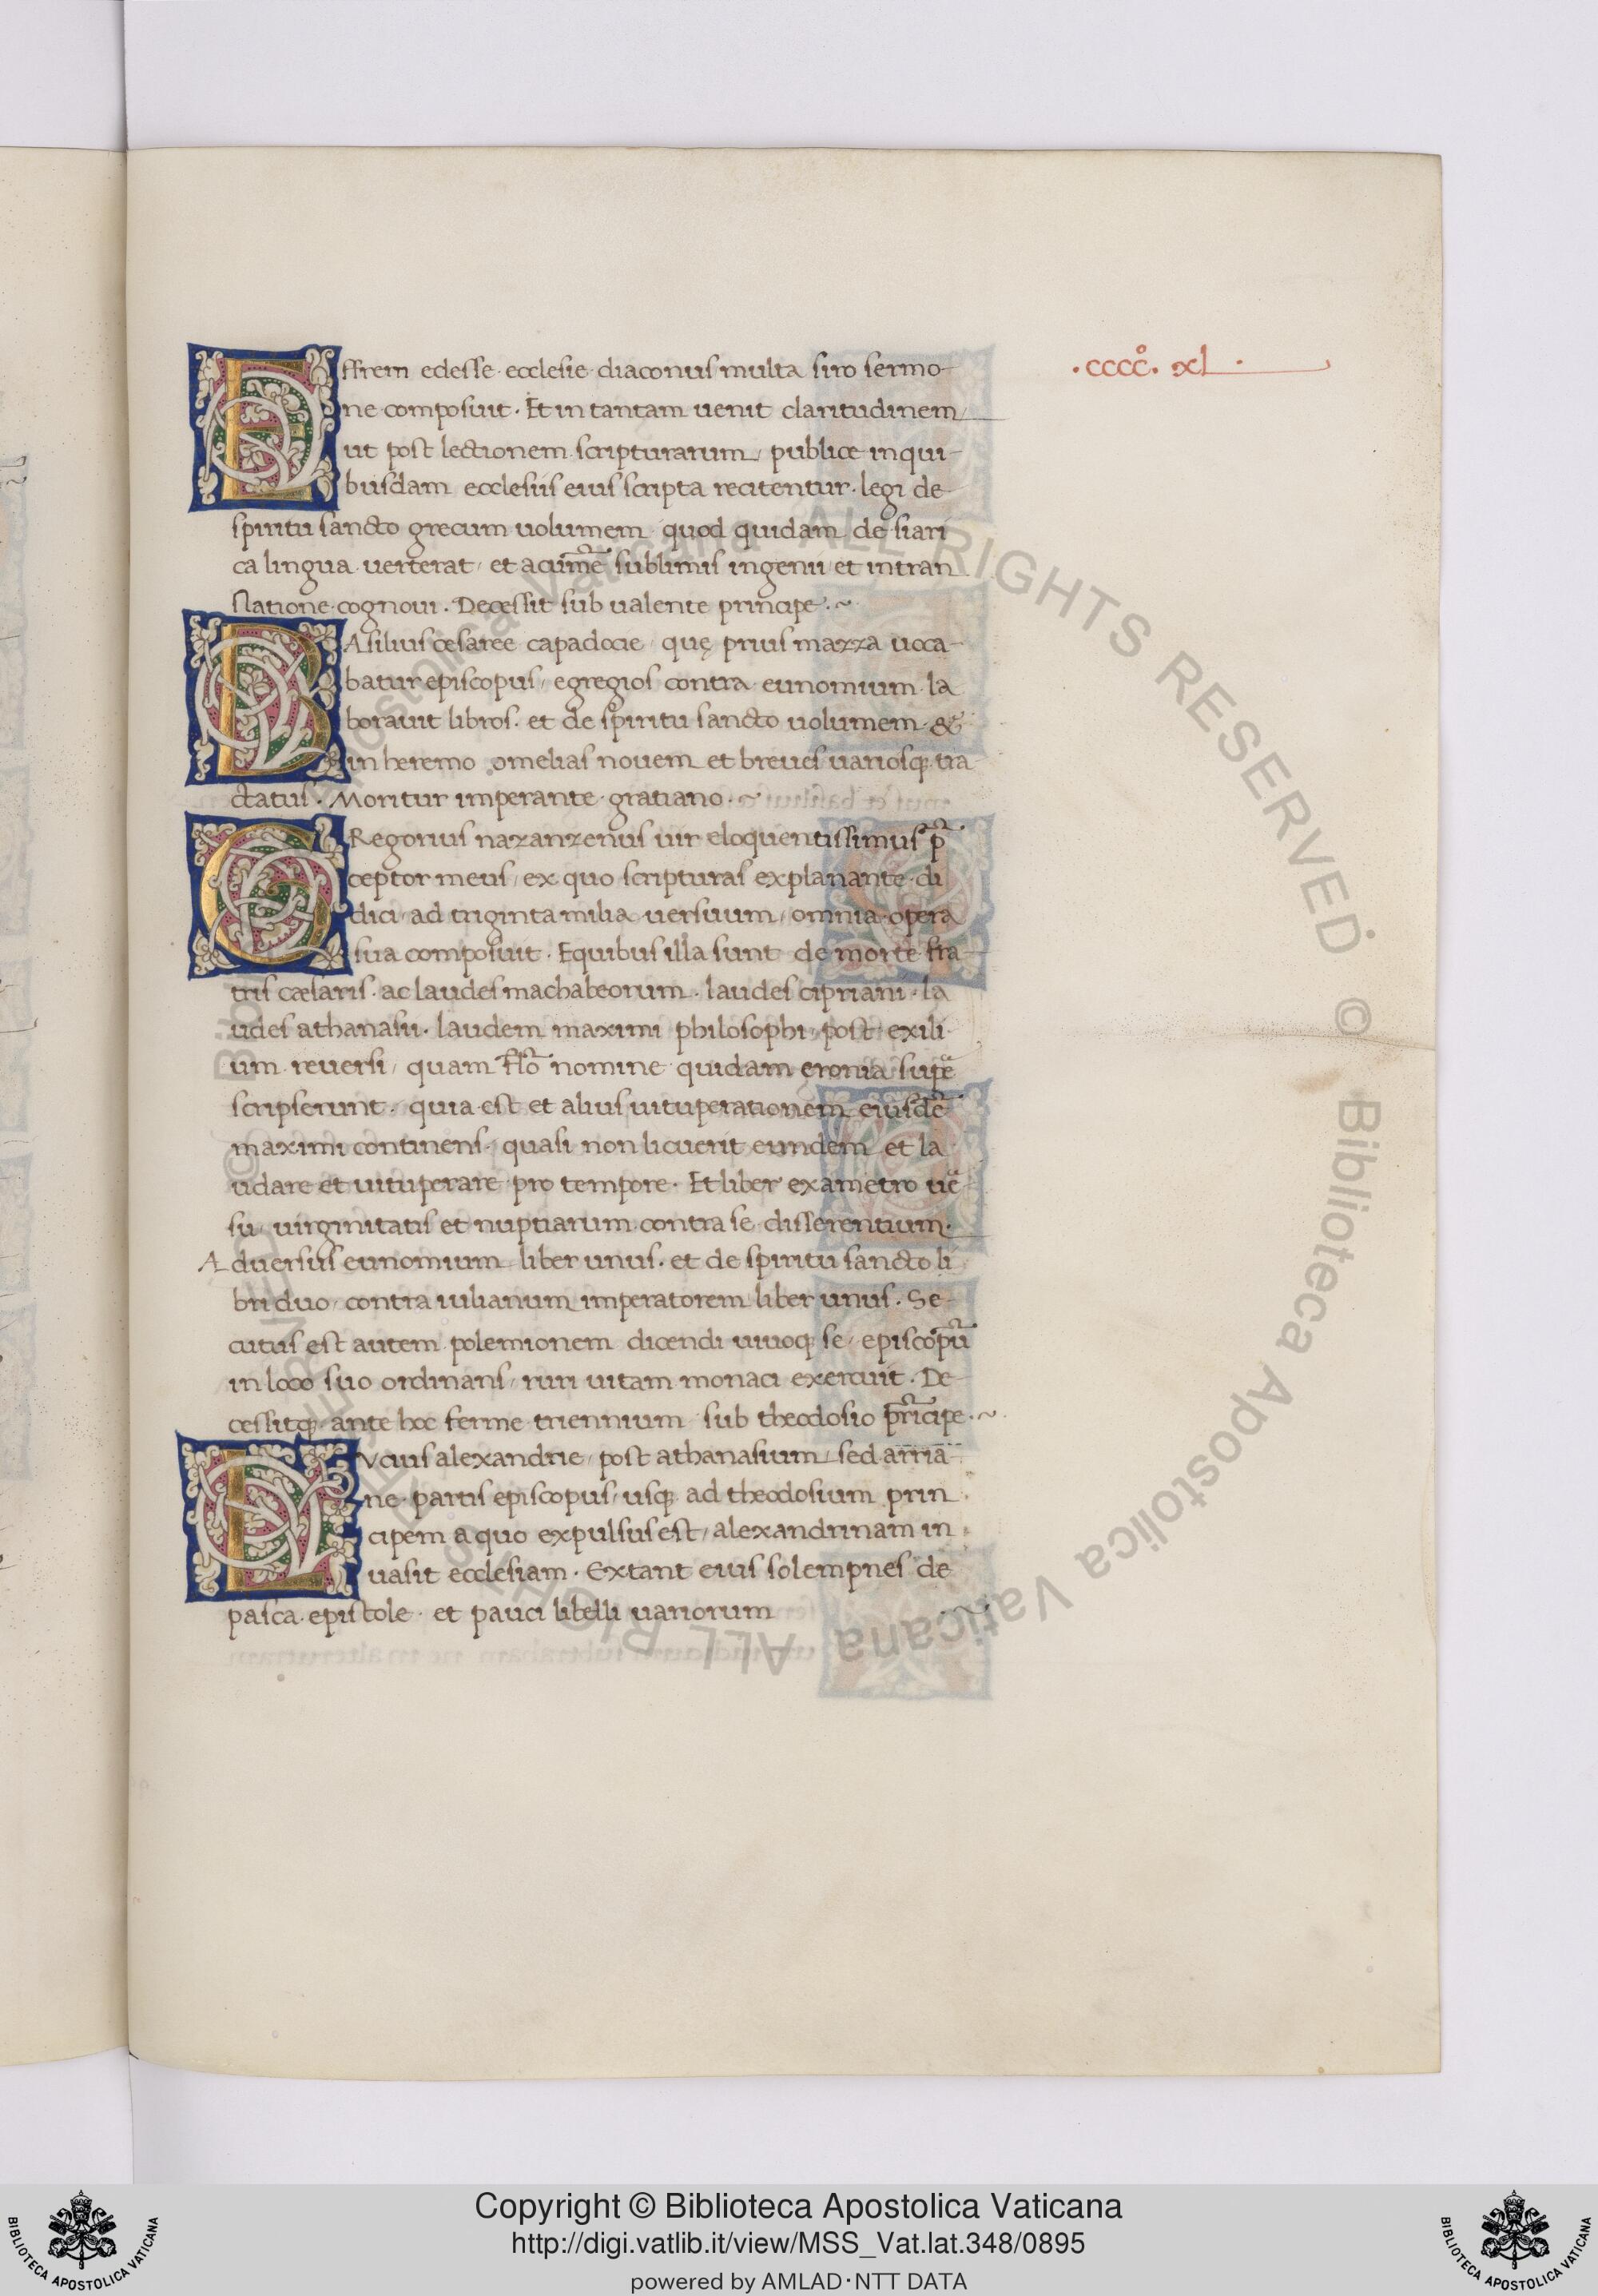 ·cccc°· xl·
Effrem edesse ecclesie diaconus multa siro sermo-
ne composuit. Et in tantam uenit claritudinem
ut post lectionem scripturarum, publice in qui-
busdam ecclesiis eius scripta recitentur. legi de
spiritu sancto grecum uolumem quod quidam de siari
ca lingua uerterat, et acum̃e sublimis ingenii et in tran
slatione cognoui. Decessit sub ualente principe. ~
BAsilius cesaree capadocie, quę prius mazza uoca-
batur episcopus, egregios contra eunomium la
borauit libros. et de spiritu sancto uolumem. &
in heremo omelias nouem et breues uariosq; tra
ctatus. Moritur imperante gratiano. ~
GRegorius nazanzenus uir eloquentissimus p̃
ceptor meus, ex quo scripturas explanante di
dici, ad triginta milia uersuum, omnia opera
sua composuit. Equibus illa sunt de morte fra-
tris cæsaris. ac laudes machabeorum. laudes cipriani. la
udes athanasii. laudem maximi philosophi, post exili
um reuersi, quam fl̃o nomine quidam eronia sup̃e
scripserunt. quia est et alius uituperationem eiusdẽ
maximi continens. quasi non licuerit eundem et la
udare et uituperare pro tempore. Et liber exametro uẽ
su, uirginitatis et nuptiarum contra se disserentium.
Aduersus eunomium liber unus. et de spiritu sancto li
bri duo, contra iulianum imperatorem liber unus. Se-
cutus est autem polemionem dicendi uiuoq; se, episcop̃u
in loco suo ordinans, ruri uitam monaci exercuit. De-
cessitq; ante hoc ferme triennium sub theodosio pr̃icipe. ~
LVcius alexandrie, post athanasium sed arria
ne partis episcopus, usq; ad theodosium prin
cipem a quo expulsus est, alexandrinam in
uasit ecclesiam. Extant eius solempnes de
pasca epistole. et pauci libelli uariorum ·~
© Biblioteca Apostolica Vaticana ALL RIGHTS RESERVED © Biblioteca Apostolica Vaticana ALL RIGHTS RESERVED
BIBLIOTECA APOSTOLICA VATICANA
Copyright © Biblioteca Apostolica Vaticana
http://digi.vatlib.it/view/MSS_Vat.lat.348/0895
powered by AMLAD·NTT DATA
BIBLIOTECA APOSTOLICA VATICANA